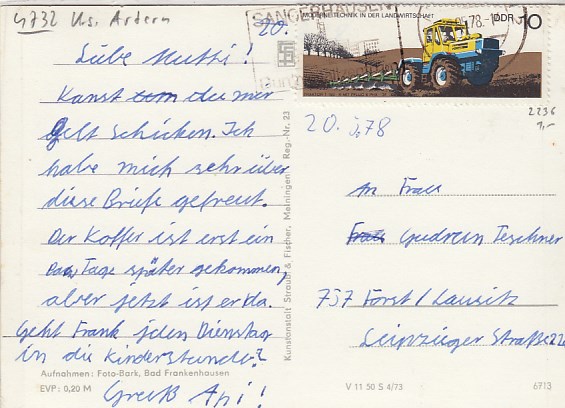 4732 Kr. Artern
20.
Liebe Mutti!
Kanst du mir
Gelt schicken. Ich
habe mich sehr über
diese Briefe gefreut.
Der Koffer ist erst ein
paar Tage später gekommen
aber jetzt ist er da.
Geht Frank jeden Dienstag
in die Kinderstunde?
Gruß
Aufnahmen: Foto-Bark, Bad Frankenhausen
EVP: 0,20 M
Kunstanstalt Straub & Fischer, Meiningen Reg.-Nr. 23
SANGERHAUSEN
MODERNE TECHNIK IN DER LANDWIRTSCHAFT
DDR 10
.78.-
2236
1,-
20. 5.78
An Frau
Frau Gudrun Teschner
757 Forst/Lausitz
Leipziger Straße 22
V 11 50 S 4/73
6713